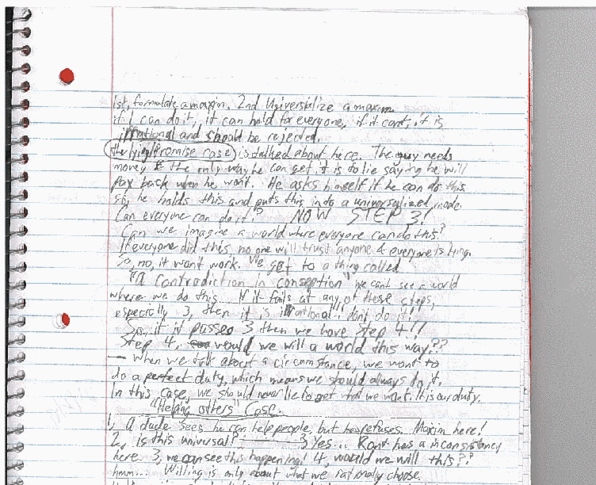 1st, formulate a maxim. 2nd Universalize a maxim.
if I can do it, it can hold for everyone, if it cant, it is
irrational and should be rejected.
the lying promise case is talked about here. The guy needs
money & the only way he can get it is to lie saying he will
pay back when he wont. He asks himself if he can do this
so, he holds this and puts this into a universalized mode.
Can everyone can do it? NOW STEP 3!
Can we imagine a world where everyone can do this?
If everyone did this, no one will trust anyone & everyone is lying.
So, no, it wont work. We get to a thing called
"A contradiction in conseption" we cant see a world
where we do this. If it fails at any of these steps,
especially 3, then it is irrational! Dont do it!
So, if it passes 3 then we have Step 4!!
Step 4, would we will a world this way??
— When we talk about a circumstance, we want to
do a perfect duty, which means we should always do it,
In this case, we should never lie to get what we want. It is our duty.
"Helping others" Case.
1, A dude sees he can help people, but he refuses. Maxim here!
2, is this universal? 3 Yes... Kant has a inconsistancy
here. 3, we can see this happening! 4, would we will this??
hmm... Willing is only about what we rationally choose.